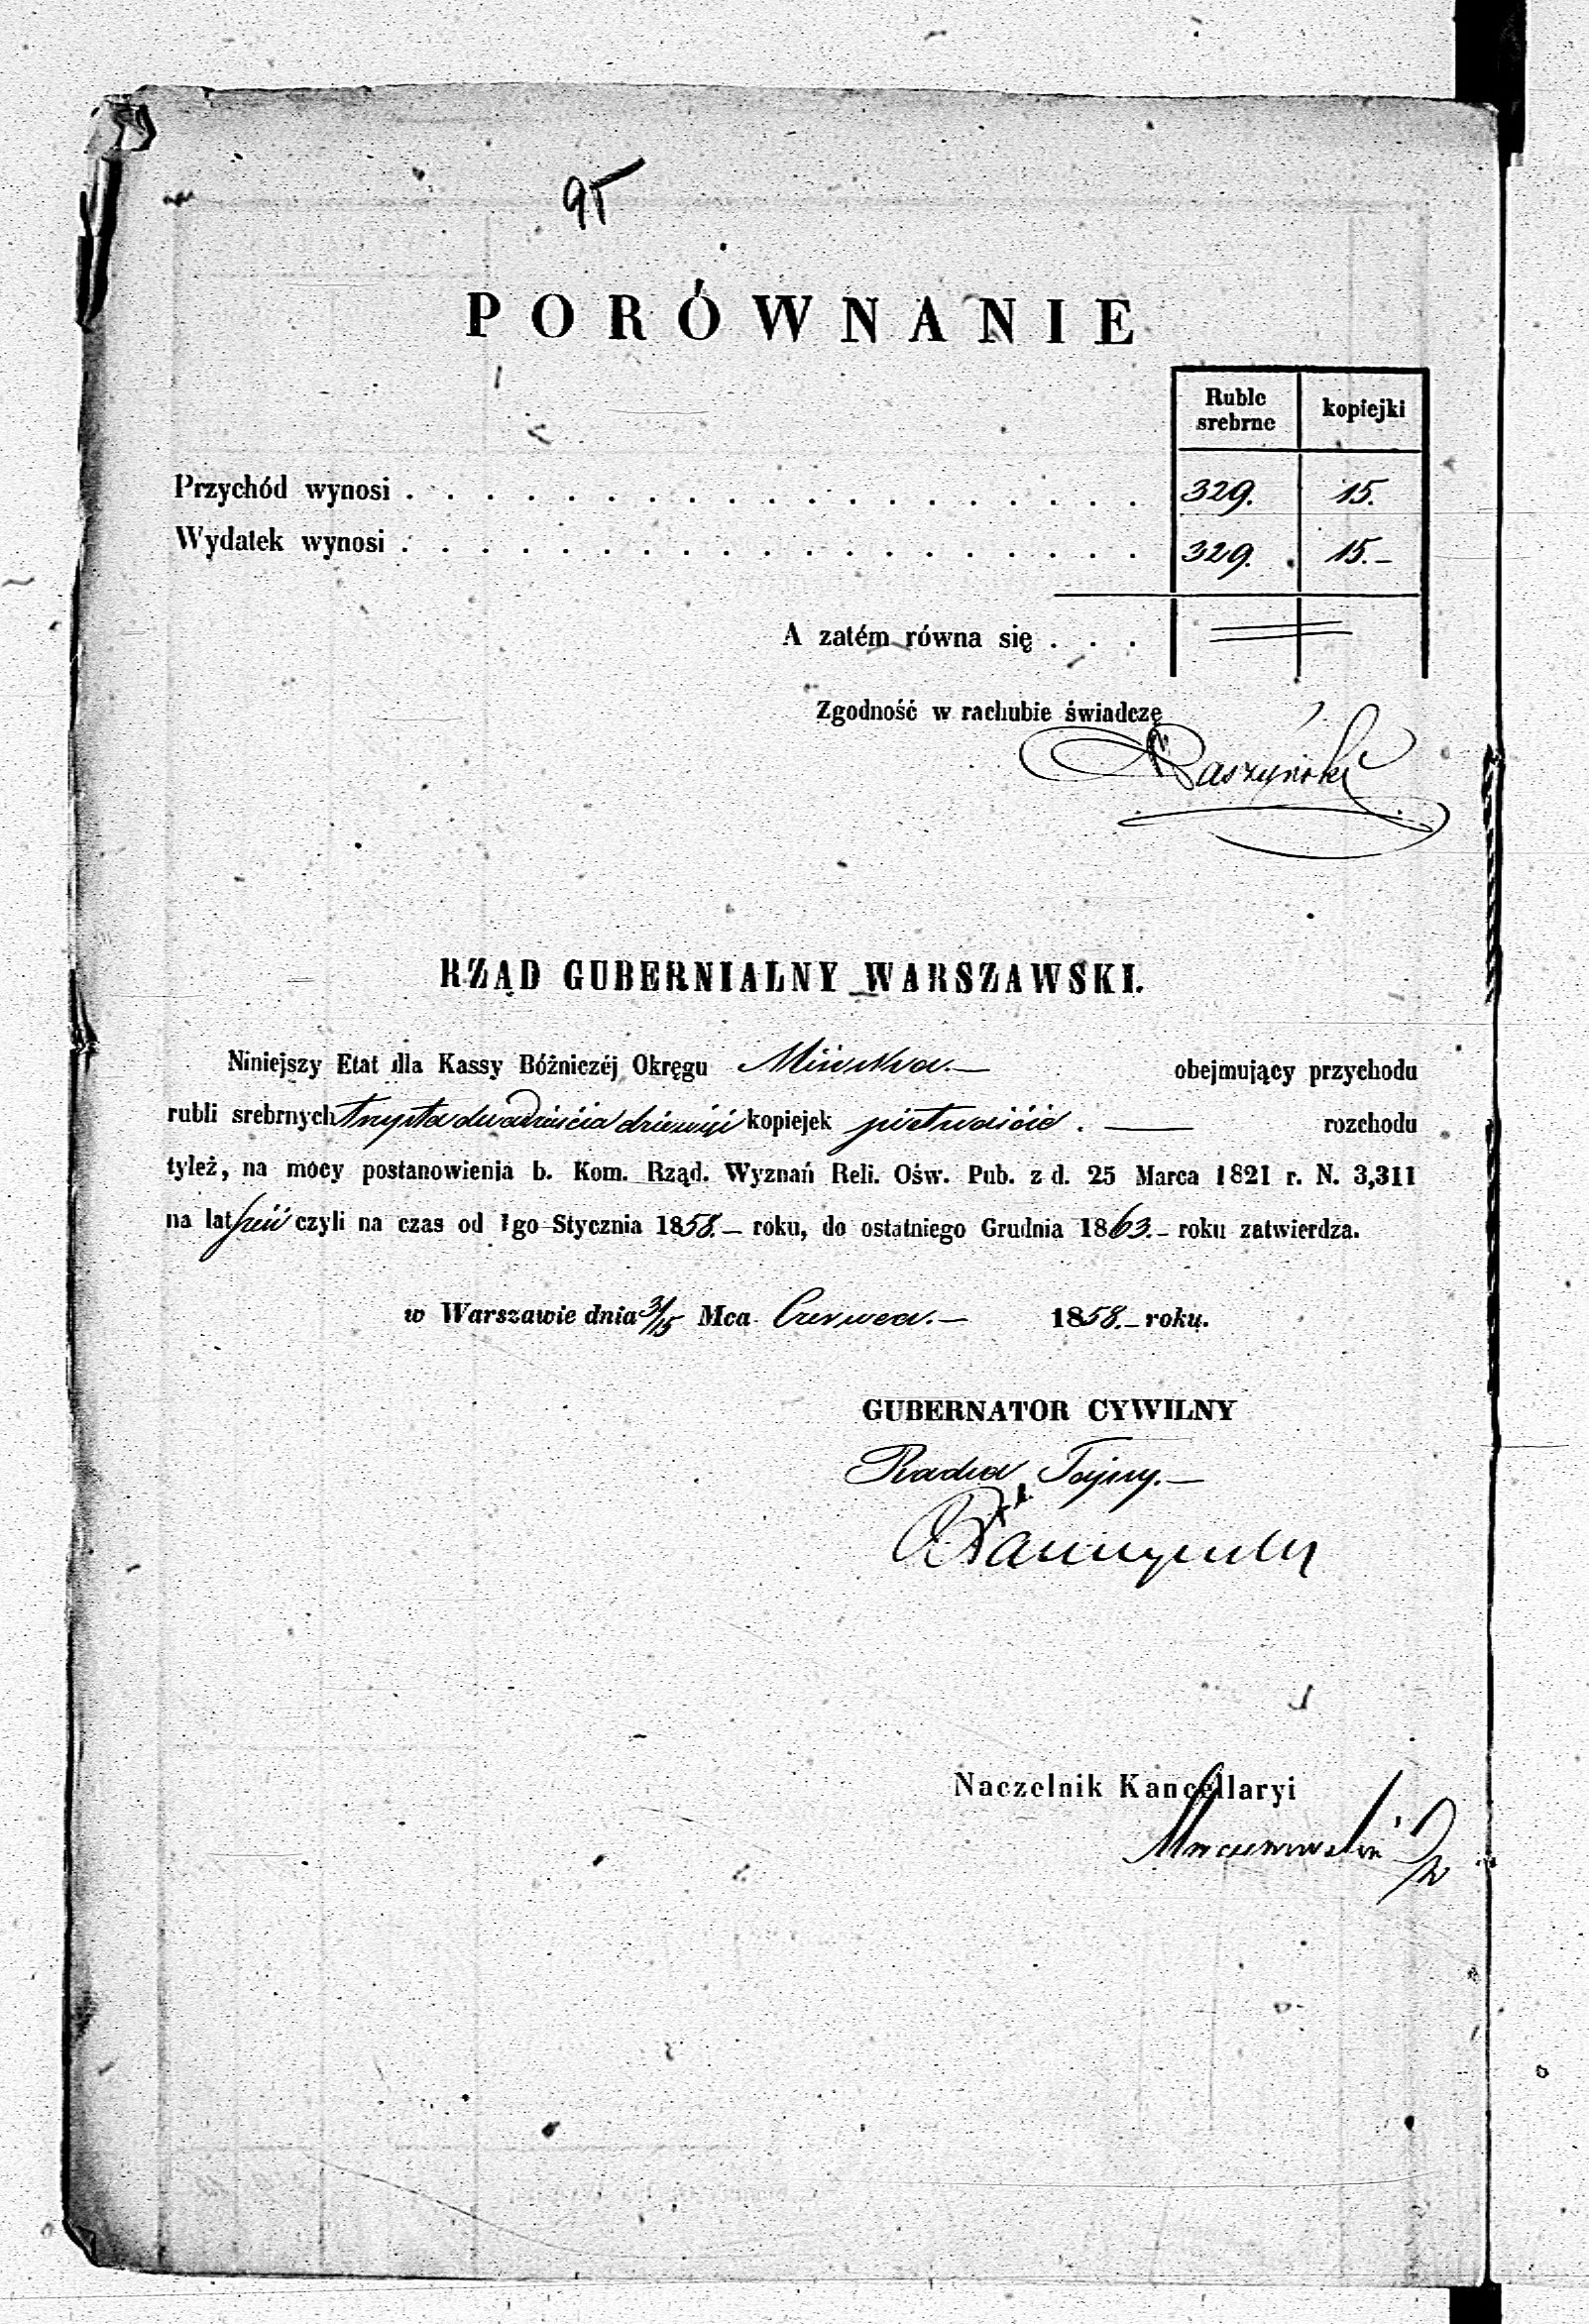 95
PORÓWNANIE
Ruble srebrne kopiejki
Przychód wynosi . . . . . . . . . . . . . . . . . . . 329. 15.
Wydatek wynosi . . . . . . . . . . . . . . . . . . . 329. 15.–
A zatém równa się . . .
Zgodność w rachubie świadczę
RZĄD GUBERNIALNY WARSZAWSKI.
Niniejszy Etat dla Kassy Bóżniczéj Okręgu Mińska.— obejmujący przychodu
rubli srebrnych trzysta dwadzieścia dziewięć kopiejek piętnaście. — rozchodu
tyleż, na mocy postanowienia b. Kom. Rząd. Wyznań Reli. Ośw. Pub. z d. 25 Marca 1821 r. N. 3,311
na lat sześć czyli na czas od 1go Stycznia 1858.– roku, do ostatniego Grudnia 1863.– roku zatwierdza.
w Warszawie dnia 3/15 Mca Czerwca.— 1858.– roku.
GUBERNATOR CYWILNY
Radca Tajny.—
Naczelnik Kancellaryi